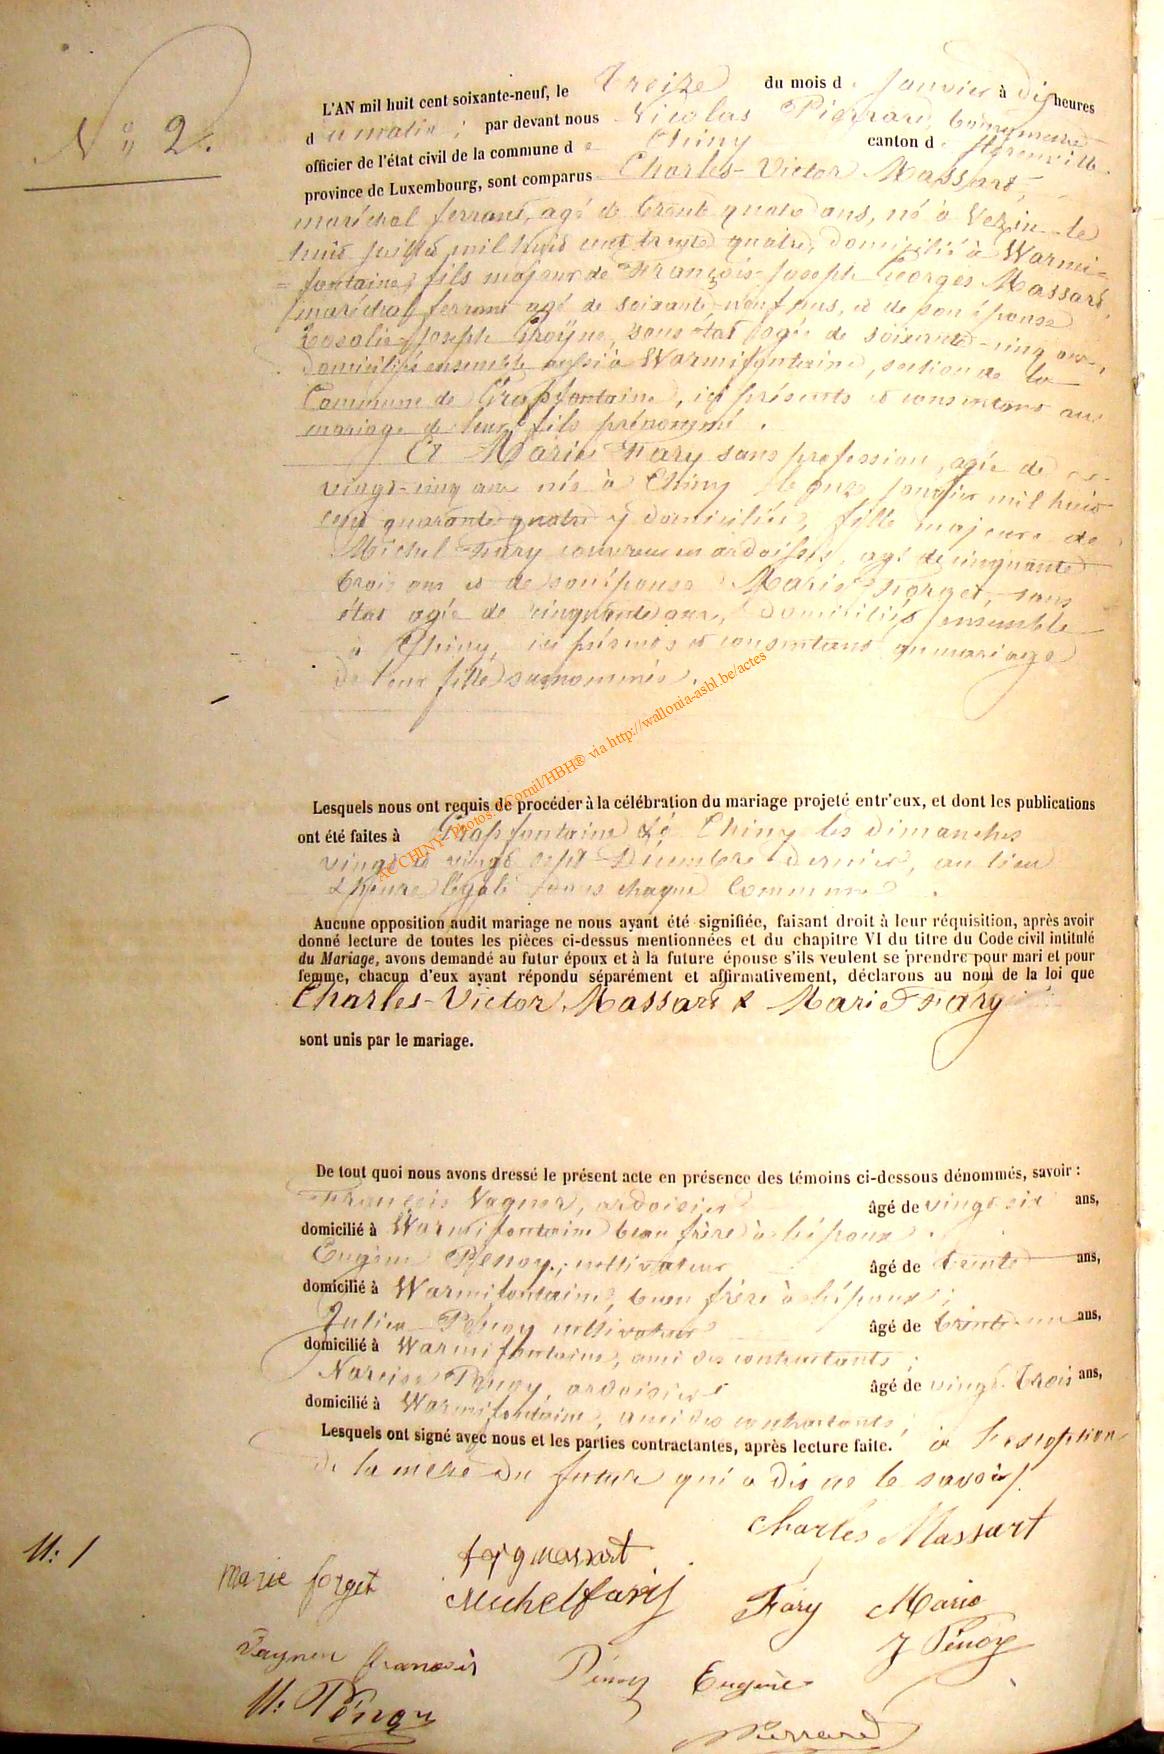 N° 2.
L'AN mil huit cent soixante-neuf, le Treize du mois d Janvier à dix heures
d u matin, par devant nous Nicolas Pierrard, bourgmestre
officier de l'état civil de la commune d e Chiny canton d Florenville
province de Luxembourg, sont comparus Charles-Victor Massart,
maréchal ferrant, agé de trente quatre ans, né à Vezin le
huit mil huit cent trente quatre, domicilié à Warmi=
=fontaine, fils majeur de François-Joseph Georges Massart,
maréchal ferrant agé de soixante-neuf ans, et de son épouse
Rosalie-Joseph sans état agée de soixante-cinq ans,
domiciliés ensemble aussi à Warmifontaine, section de la
Commune de Grapfontaine, ici présents et consentans au
mariage de leur fils prénommé.
Et Marie Fary sans profession, agée de
vingt-cinq ans née à Chiny le onze janvier mil huit
cent quarante quatre y domiciliée, fille majeure de
Michel Fary couvreur en ardoises, agé de cinquante
trois ans et de son épouse Marie Forget, sans
état agée de cinquante ans, domiciliés ensemble
à Chiny, ici présents et consentans au mariage
de leur fille surnommée.
ACCHINY- Photos: JCornil/HBH® via http://wallonia-asbl.be/actes
Lesquels nous ont requis de procéder à la célébration du mariage projeté entr'eux, et dont les publications
ont été faites à Grapfontaine & à Chiny les dimanches
vingt et vingt sept Décembre dernier, au lieu
& heure légale dans chaque Commune.
Aucune opposition audit mariage ne nous ayant été signifiée, faisant droit à leur réquisition, après avoir
donné lecture de toutes les pièces ci-dessus mentionnées et du chapitre VI du titre du Code civil intitulé
du Mariage, avons demandé au futur époux et à la future épouse s'ils veulent se prendre pour mari et pour
femme, chacun d'eux ayant répondu séparément et affirmativement, déclarons au nom de la loi que
Charles-Victor Massart & Marie Fary
sont unis par le mariage.
De tout quoi nous avons dressé le présent acte en présence des témoins ci-dessous dénommés, savoir :
François Vagner, ardoisier âgé de vingt six ans,
domicilié à Warmifontaine beau frère à l'époux.
Eugène Pénoy, cultivateur âgé de trente ans,
domicilié à Warmifontaine, beau frère à l'époux;
Julien Pénoy cultivateur âgé de trente-un ans,
domicilié à Warmifontaine, ami des contractants;
Narcisse Pénoy, ardoisier âgé de vingt trois ans,
domicilié à Warmifontaine, ami des contractants;
Lesquels ont signé avec nous et les parties contractantes, après lecture faite. à l'exception
de la mère du futur qui a dit ne le savoir.
Charles Massart
N: 1
marie forget
f j g massart
Michel fary
Fary Marie
J Pénoy
Vagner francois
Pénoy Eugène
N: Pénoy
Pierrard